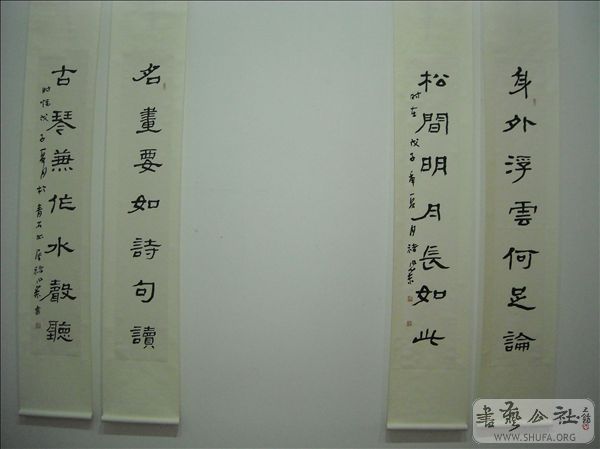 身外浮雲何足論
松間明月長如此
时在戊子年夏月
名畫要如詩句讀
古琴兼作水聲聽
时惟戊子年夏月於青
書藝公社
WWW.SHUFA.ORG